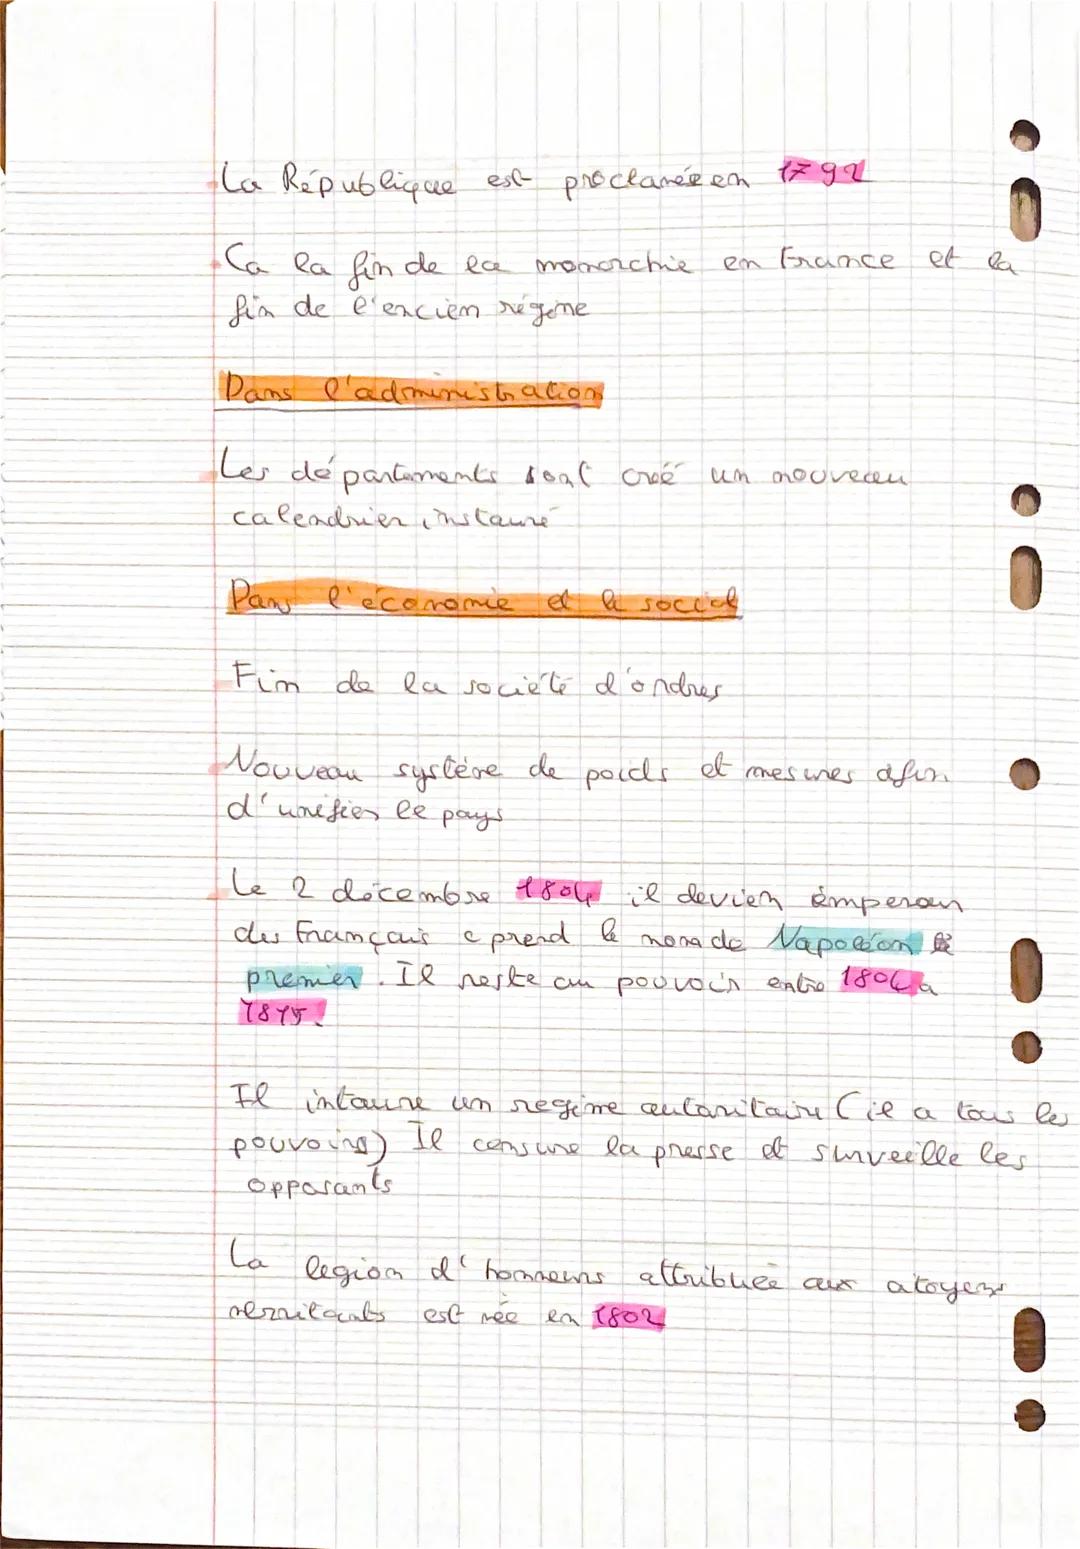 La République est proclamée en 1792
Ca la fin de la monarchie en France et la
fin de l'encien régime
Dans l'administration
Les départements sont créé un nouveau
calendrier instauré
Dans l'économie et le social
Fin de la société d'ordres
Nouveau système de poids et mesures afin
d'unifier le pays
Le 2 décembre 1804 il devien émpereur
des Français e prend le nom de Napoléon
premier. Il reste au pouvoir entre 1804 a
1815.
Il intaure un regime autoritaire (il a tous les
pouvoirs) Il censure la presse et surveille les
opposants
La legion d'honneurs attribuée aux citoyens
méritants est née en 1802